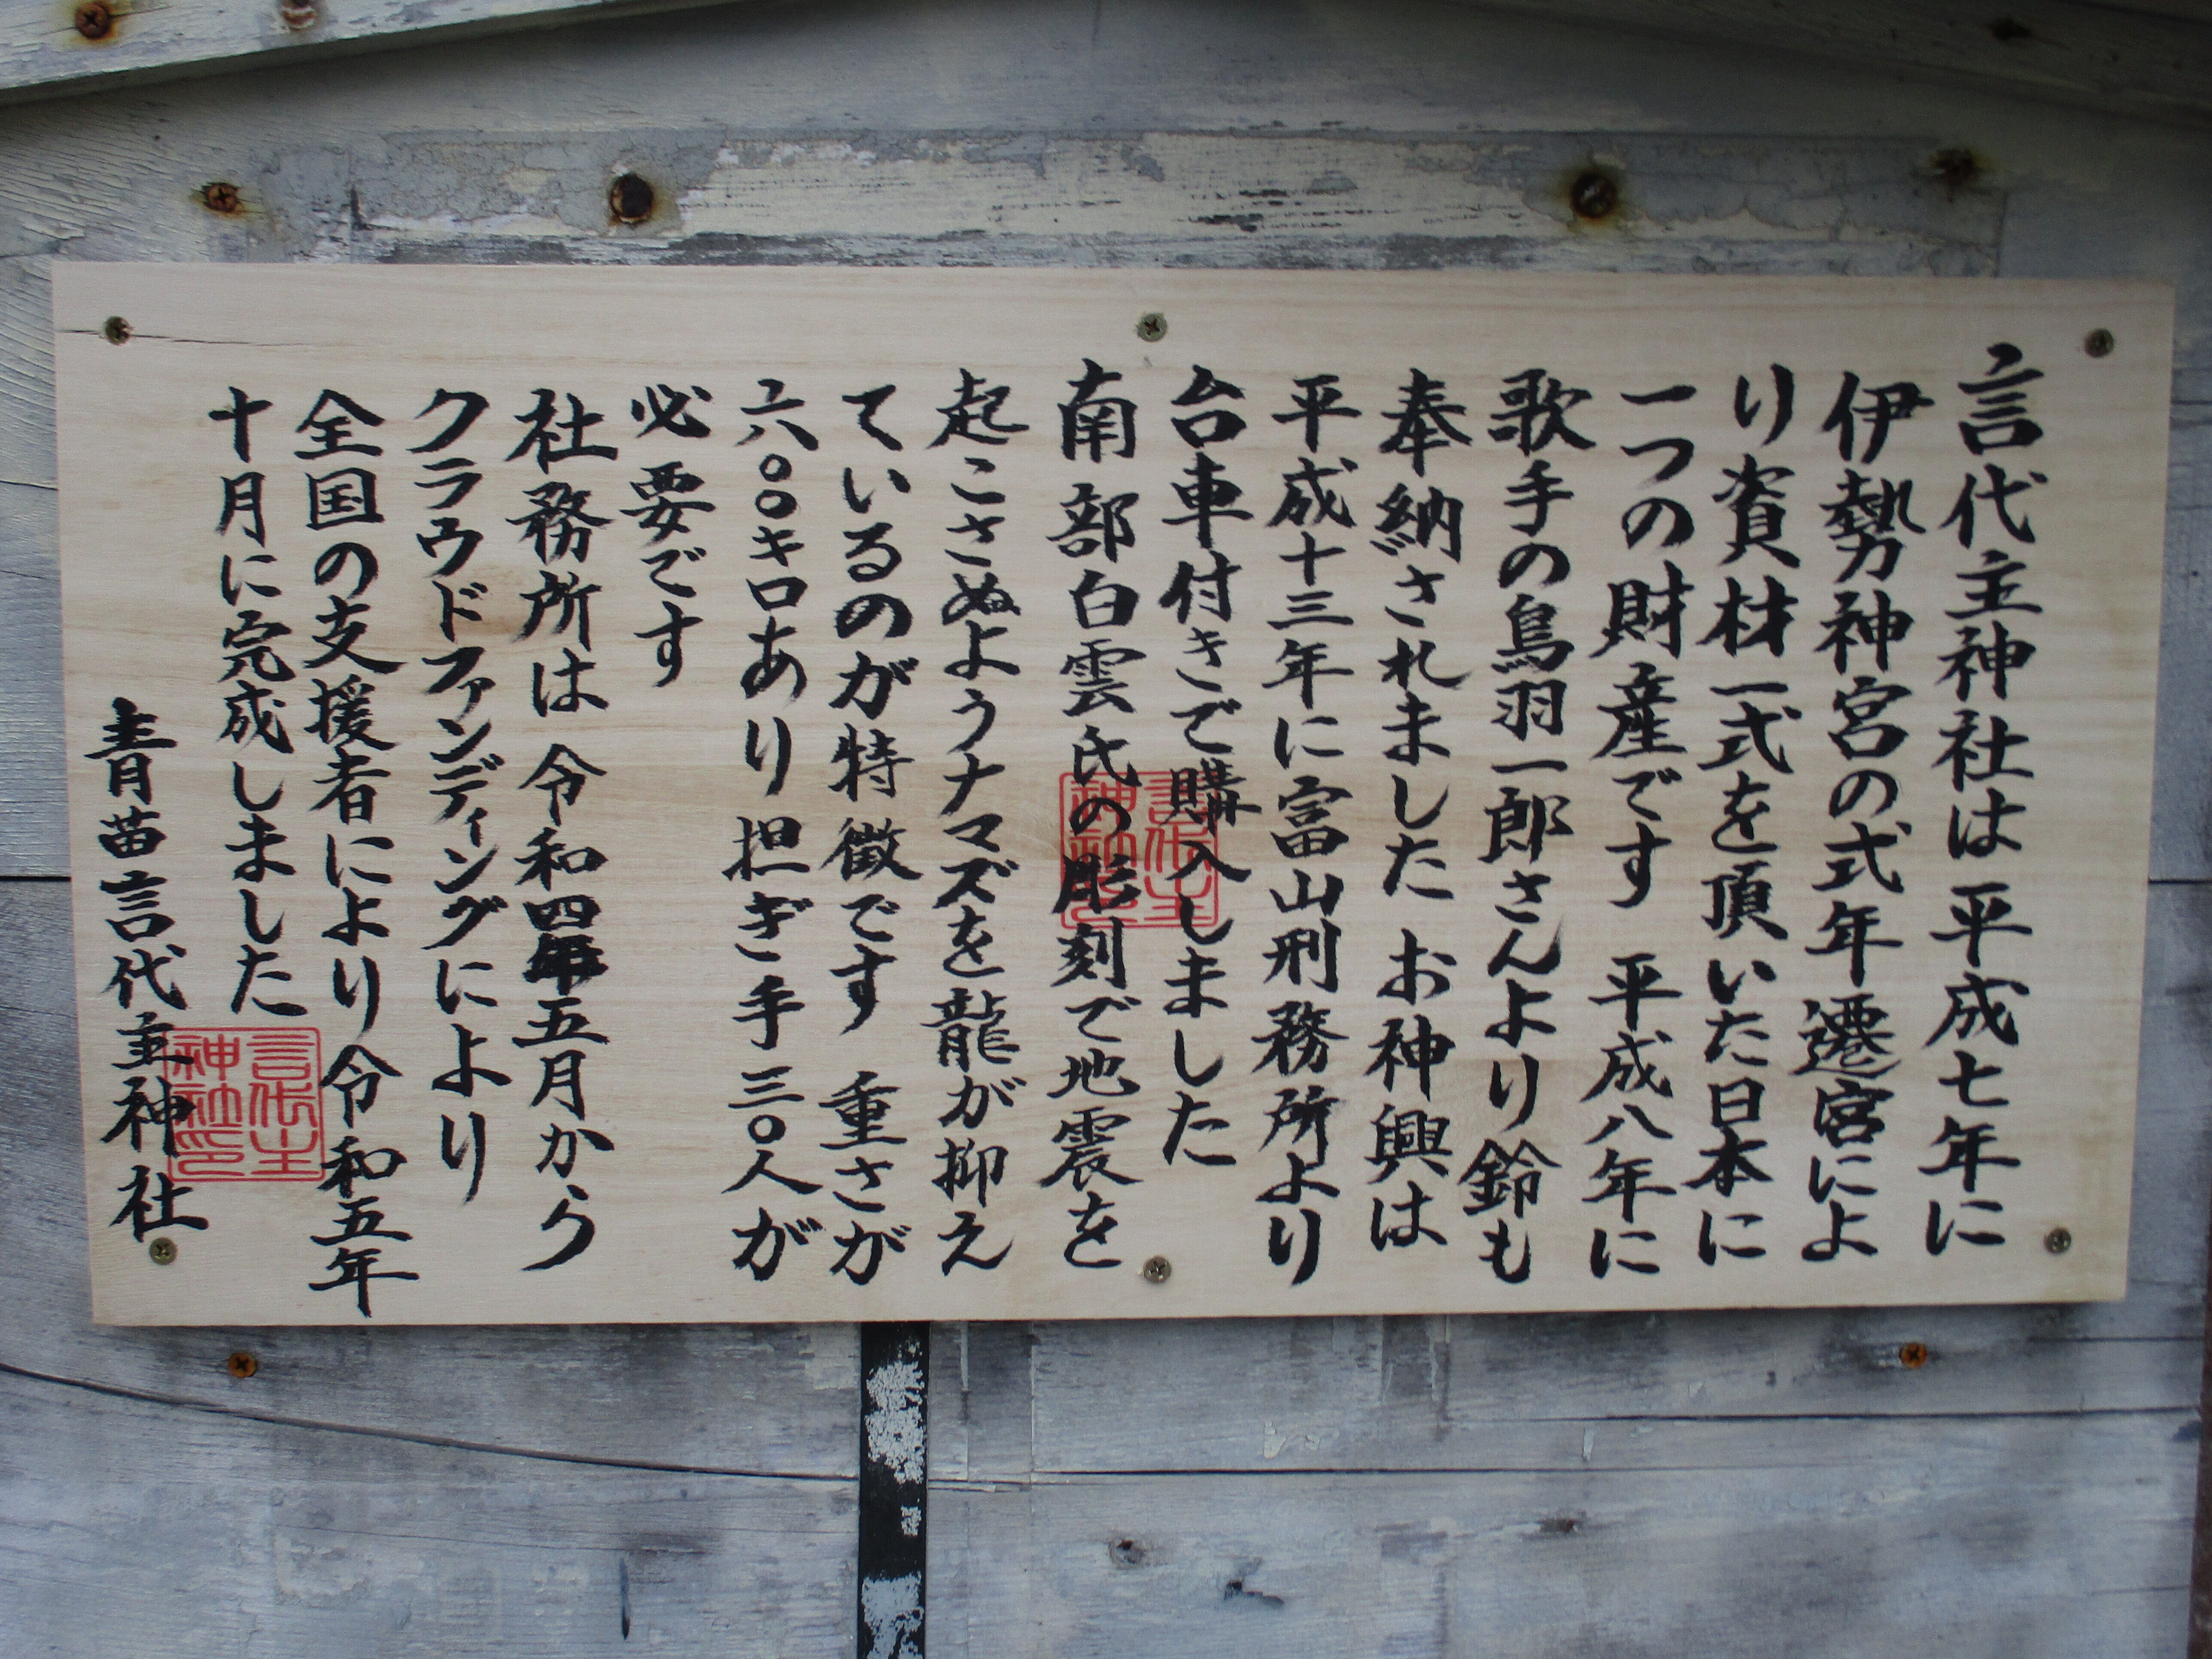 言代主神社は平成七年に
伊勢神宮の式年遷宮によ
り資材一式を頂いた日本に
一つの財産です 平成八年に
歌手の鳥羽一郎さんより鈴も
奉納されました お神輿は
平成十三年に富山刑務所より
台車付きで購入しました
南部白雲氏の彫刻で地震を
起こさぬようナマズを龍が抑え
ているのが特徴です 重さが
六〇〇キロあり担ぎ手三〇人が
必要です
社務所は令和四年五月から
クラウドファンディングにより
全国の支援者により令和五年
十月に完成しました
青苗言代主神社
言代主
神社印
言代主
神社印